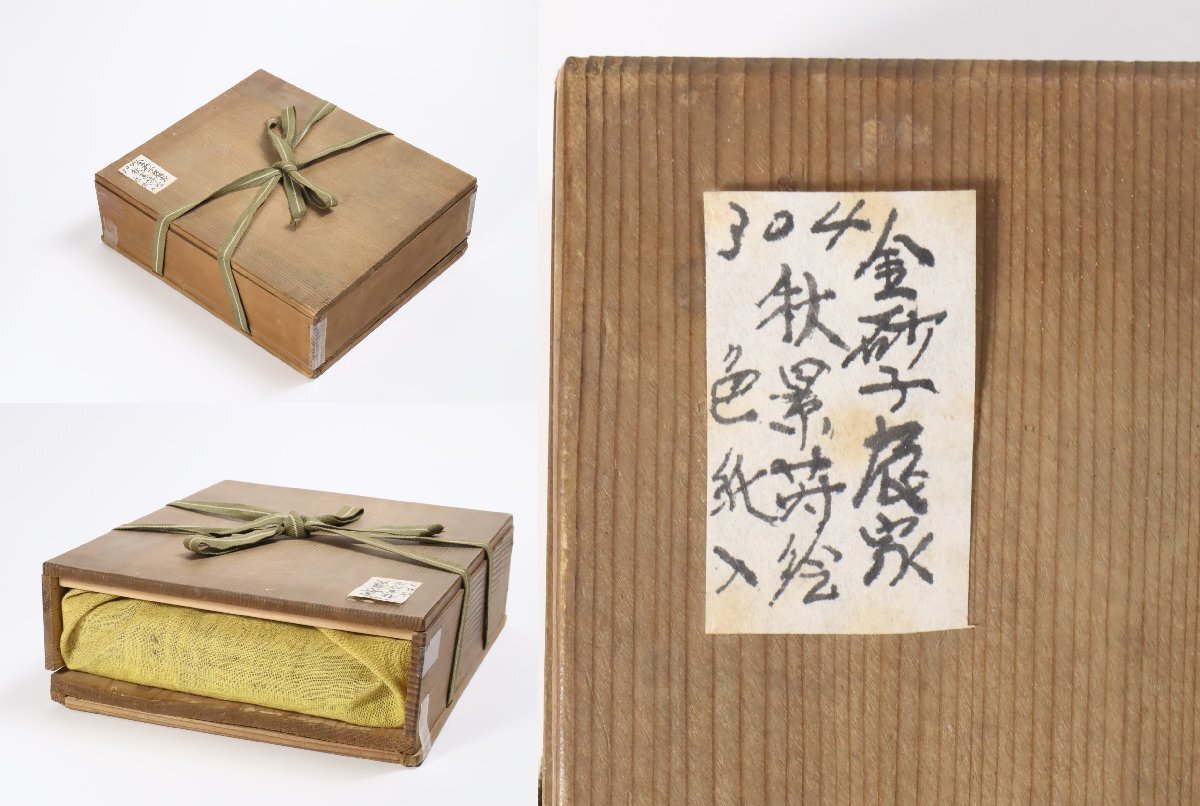 304
金砂子農家
秋景蒔絵
色紙入